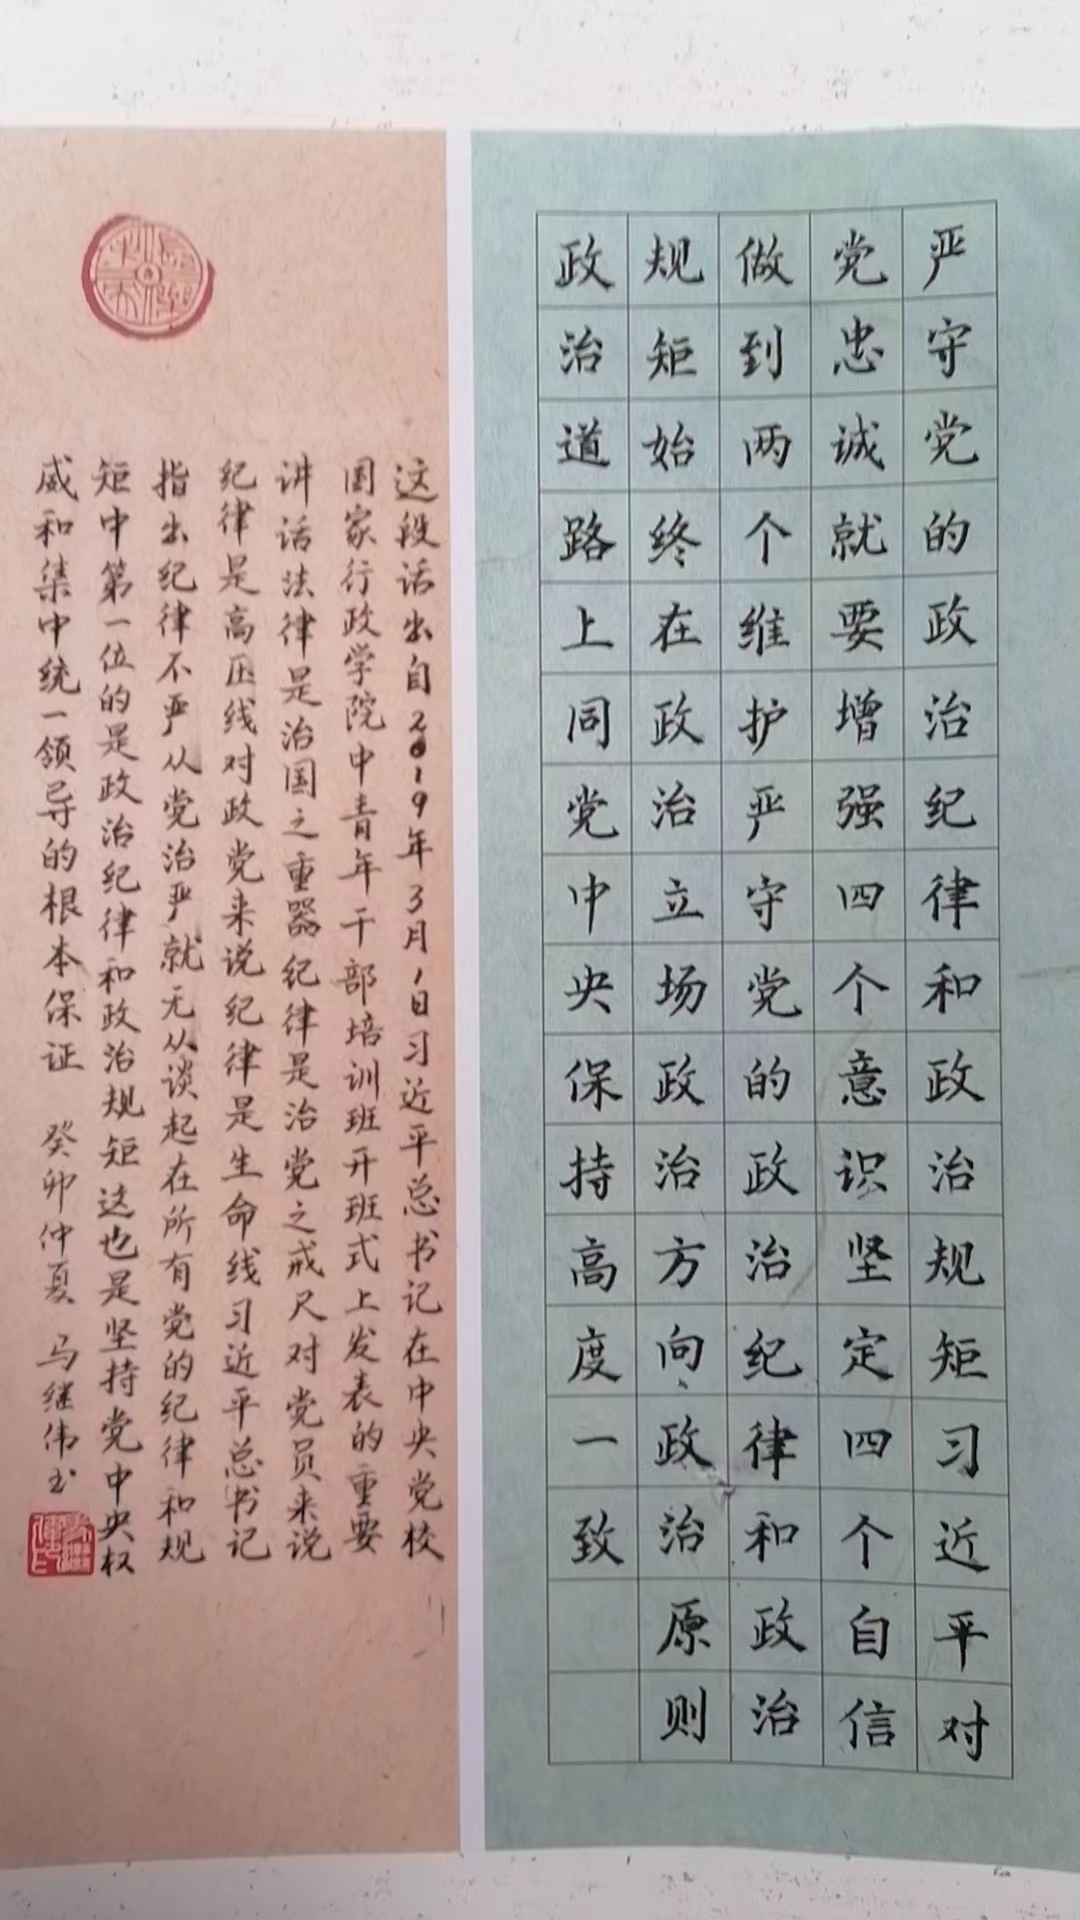 严守党的政治纪律和政治规矩习近平对
党忠诚就要增强四个意识坚定四个自信
做到两个维护严守党的政治纪律和政治
规矩始终在政治立场政治方向、政治原则
政治道路上同党中央保持高度一致
这段话出自2019年3月1日习近平总书记在中央党校
国家行政学院中青年干部培训班开班式上发表的重要
讲话法律是治国之重器纪律是治党之戒尺对党员来说
纪律是高压线对政党来说纪律是生命线习近平总书记
指出纪律不严从党治严就无从谈起在所有党的纪律和规
矩中第一位的是政治纪律和政治规矩这也是坚持党中央权
威和集中统一领导的根本保证 癸卯仲夏 马继伟书